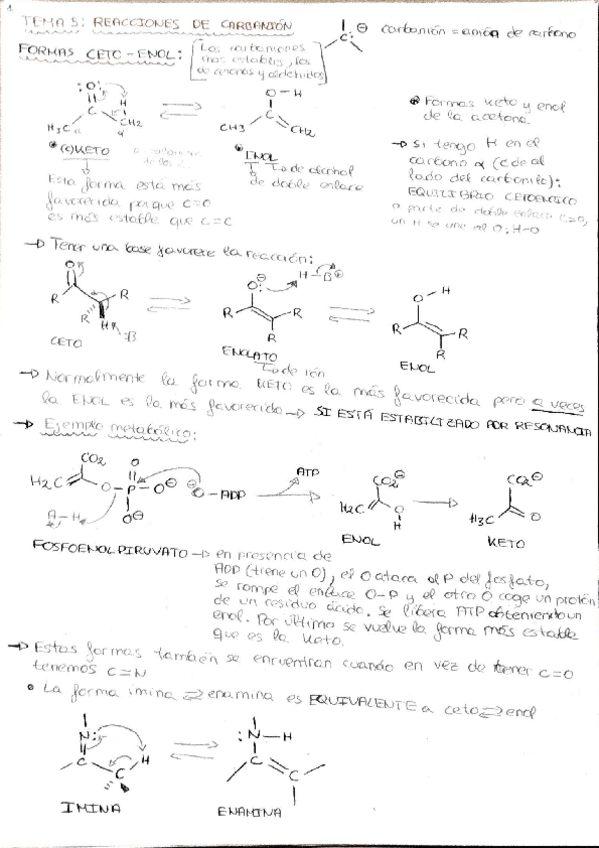 1
TEMA 5: REACCIONES DE CARBANIÓN
carbanión = anión de carbono
FORMAS CETO-ENOL: [Los carbaniones más estables, los de cetonas y aldehídos]
C: ⊖
:O: H
C
H3C CH2
α
O-H
C
CH3 CH2
• Formas keto y enol
de la acetona.
• (C)KETO
Esta forma está más
favorecida porque C=O
es más estable que C=C
• ENOL
↳ de alcohol
de doble enlace
→ Si tengo H en el
carbono α (C de al
lado del carbonilo):
EQUILIBRIO CETOENOLICO
a parte de doble enlace C=O,
un H se une al O; H-O
→ Tener una base favorece la reacción:
O R R R H :B
CETO
O ⊖ H-B⊕ R R R
ENOLATO
↳ de ión
O-H R R R
ENOL
→ Normalmente la forma KETO es la más favorecida pero a veces
la ENOL es la más favorecida → SI ESTÁ ESTABILIZADO POR RESONANCIA
→ Ejemplo metabólico:
CO2 H2C O-P-O⊖ O O⊖ A-H
⊖O-ADP
ATP
CO2⊖ H2C O H
ENOL
CO2⊖ H3C O
KETO
FOSFOENOLPIRUVATO → en presencia de
ADP (tiene un O), el O ataca al P del fosfato,
se rompe el enlace O-P y el otro O coge un protón
de un residuo ácido. Se libera ATP obteniendo un
enol. Por último se vuelve la forma más estable
que es la keto.
→ Estas formas también se encuentran cuando en vez de tener C=O
tenemos C=N
• La forma imina ⇄ enamina es EQUIVALENTE a ceto ⇄ enol
N: C C H
IMINA
:N-H C C
ENAMINA